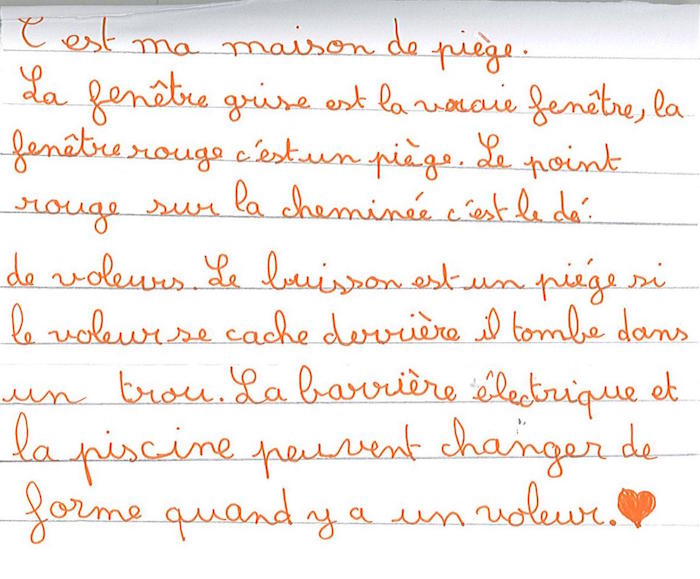 C'est ma maison de piège.
La fenêtre grise est la vraie fenêtre, la
fenêtre rouge c'est un piège. Le point
rouge sur la cheminée c'est le dé
de voleurs. Le buisson est un piége si
le voleur se cache derrière il tombe dans
un trou. La barrière électrique et
la piscine peuvent changer de
forme quand y a un voleur.